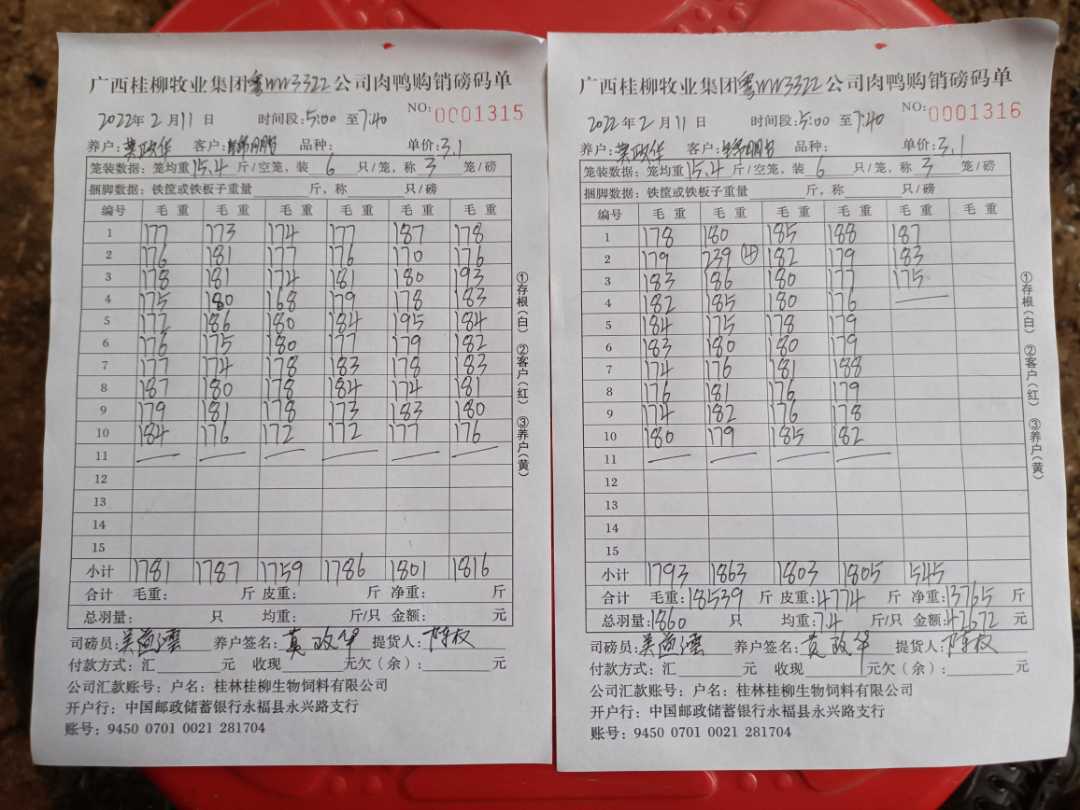 广西桂柳牧业集团粤WW3322公司肉鸭购销磅码单
NO:0001315
2022年2月11日 时间段:5:00至7:40
养户:莫政华 客户: 品种: 单价:3.1
笼装数据:笼均重15.4斤/空笼,装6只/笼,称3笼/磅
捆脚数据:铁筐或铁板子重量 斤,称 只/磅
编号 毛重 毛重 毛重 毛重 毛重 毛重
1 177 173 174 177 187 178
2 176 181 177 176 170 176
3 178 181 174 181 180 193
4 175 180 168 179 178 183
5 172 186 180 184 195 184
6 176 175 180 177 179 182
7 177 174 178 183 178 183
8 187 180 178 184 174 181
9 179 181 178 173 183 180
10 184 176 172 172 177 176
11 — — — — — —
12
13
14
15
小计 1781 1787 1759 1786 1801 1816
合计 毛重: 斤 皮重: 斤 净重: 斤
总羽量: 只 均重: 斤/只 金额: 元
司磅员: 养户签名:莫政华 提货人:陈权
付款方式:汇 元 收现 元欠(余): 元
公司汇款账号:户名:桂林桂柳生物饲料有限公司
开户行:中国邮政储蓄银行永福县永兴路支行
账号:9450 0701 0021 281704
①存根(白) ②客户(红) ③养户(黄)
广西桂柳牧业集团粤WW3322公司肉鸭购销磅码单
NO:0001316
2022年2月11日 时间段:5:00至7:40
养户:莫政华 客户: 品种: 单价:3.1
笼装数据:笼均重15.4斤/空笼,装6只/笼,称3笼/磅
捆脚数据:铁筐或铁板子重量 斤,称 只/磅
编号 毛重 毛重 毛重 毛重 毛重 毛重
1 178 180 185 188 187
2 179 239 ④ 182 179 183
3 183 186 180 177 175
4 182 185 180 176 —
5 184 175 178 179
6 183 180 180 179
7 174 176 181 188
8 176 181 176 179
9 174 182 176 178
10 180 179 185 182
11 — — — —
12
13
14
15
小计 1793 1863 1803 1805 545
合计 毛重:18539斤 皮重:4774斤 净重:13765斤
总羽量:1860只 均重:7.4斤/只 金额:42672元
司磅员: 养户签名:莫政华 提货人:陈权
付款方式:汇 元 收现 元欠(余): 元
公司汇款账号:户名:桂林桂柳生物饲料有限公司
开户行:中国邮政储蓄银行永福县永兴路支行
账号:9450 0701 0021 281704
①存根(白) ②客户(红) ③养户(黄)